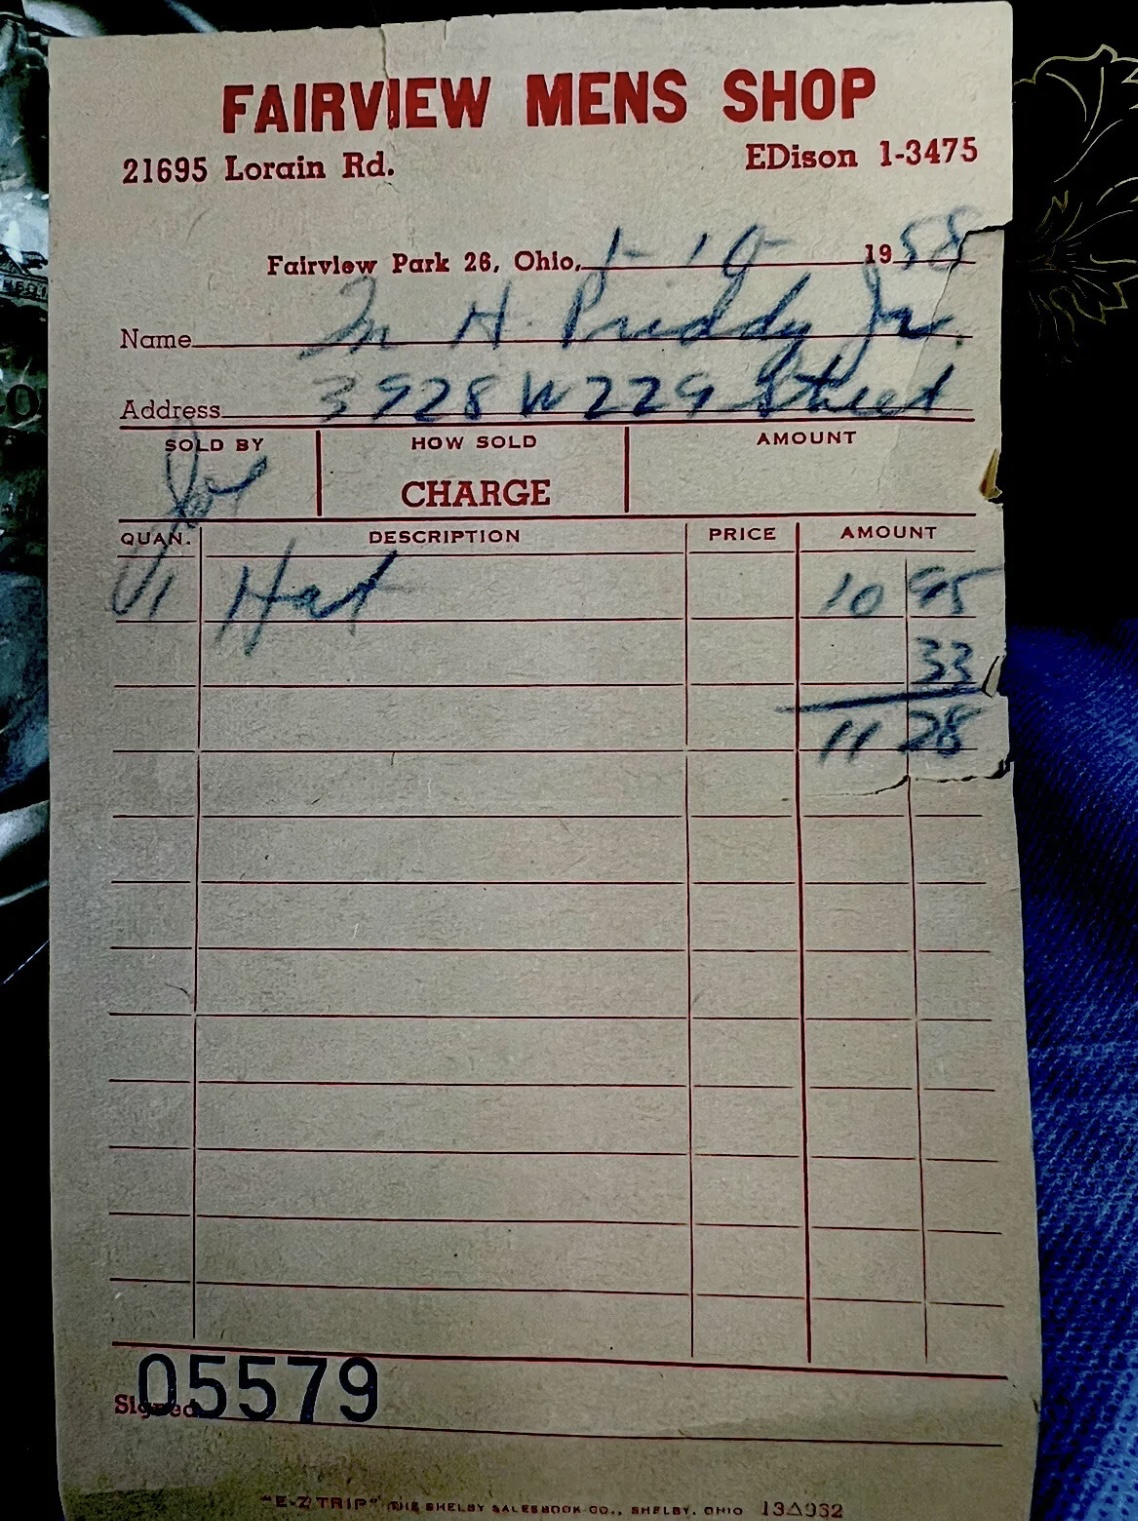 FAIRVIEW MENS SHOP
21695 Lorain Rd. EDison 1-3475
Fairview Park 26, Ohio, 1-10- 1958
Name M H. Priddy Jr.
Address 3928 W 229 Street
SOLD BY HOW SOLD AMOUNT
Joe CHARGE
QUAN. DESCRIPTION PRICE AMOUNT
1 Hat 10 95
33
11 28
Signed 05579
"E-Z TRIP" THE SHELBY SALESBOOK CO., SHELBY, OHIO 13△952